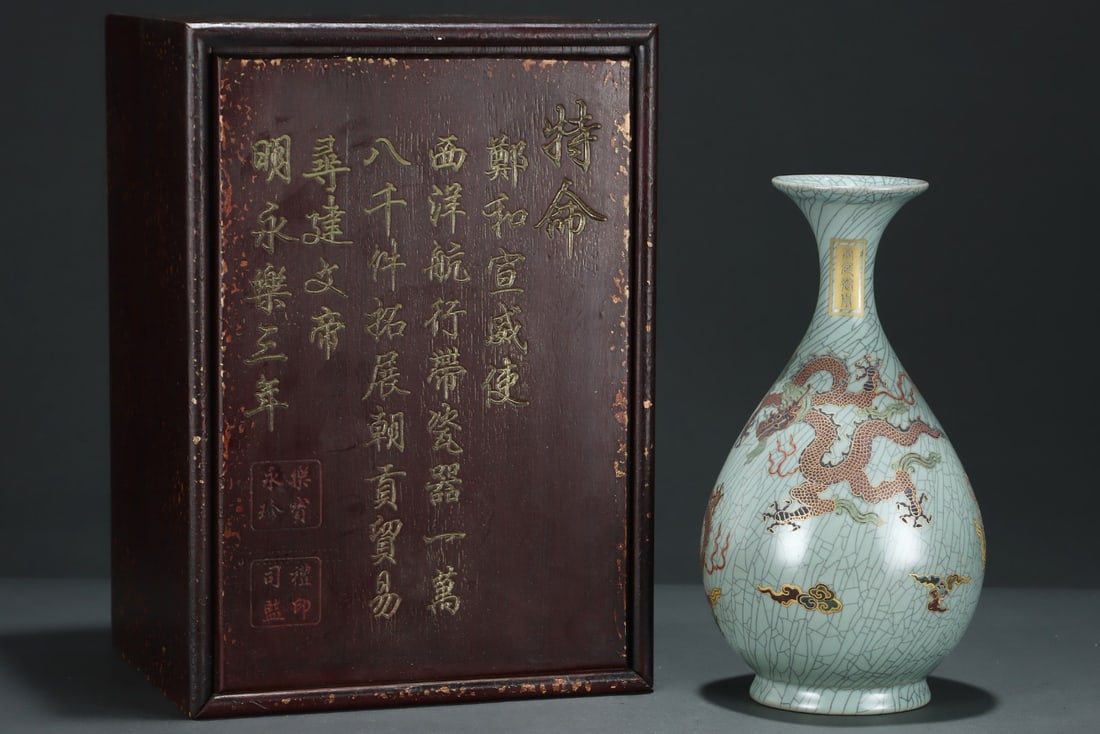 特命
鄭和宣威使
西洋航行帶瓷器一萬
八千件拓展朝貢貿易
尋建文帝
明永樂三年
樂寶
永珍
禮印
司監